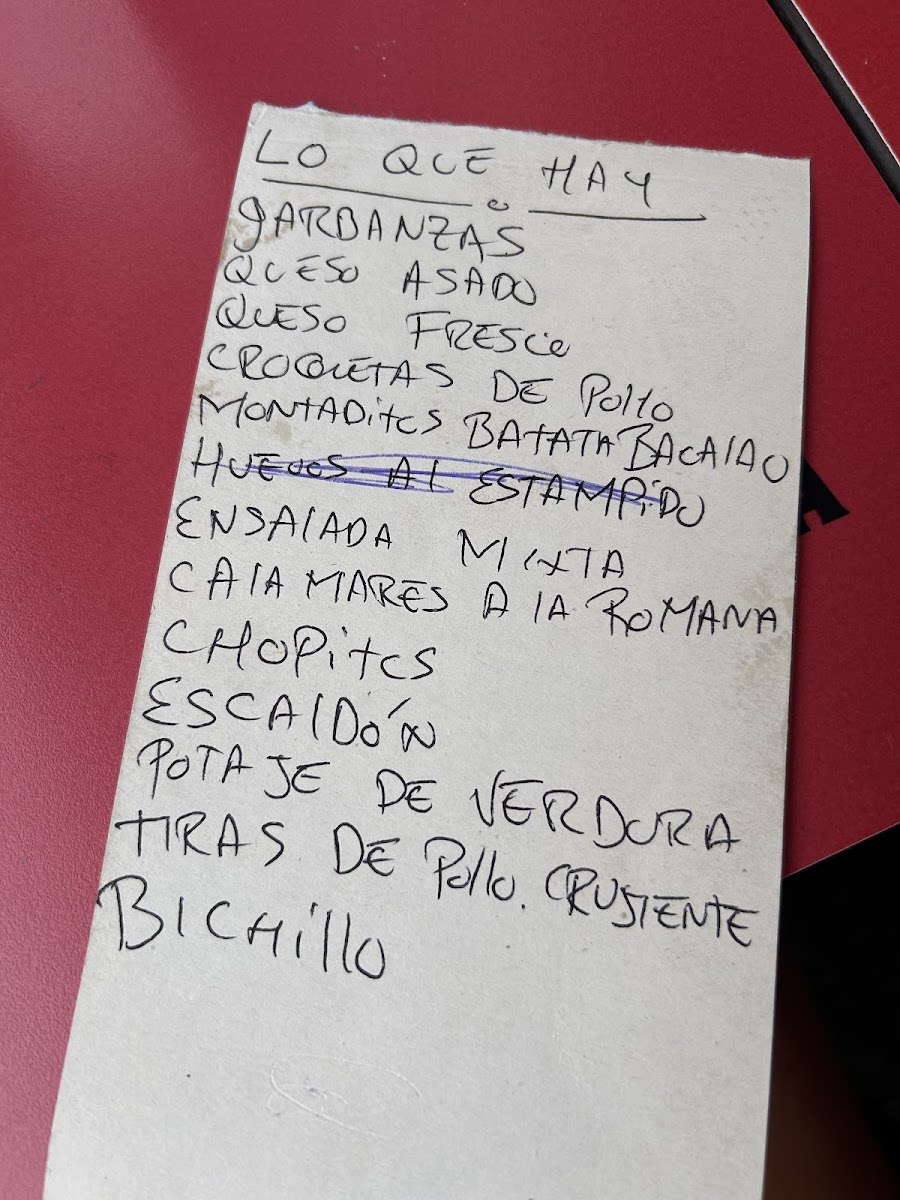 LO QUE HAY
GARBANZAS
QUESO ASADO
QUESO FRESCO
CROQUETAS DE POllO
MONTADitOS BATATA BACAlAO
HUEVOS Al ESTAMPiDO
ENSAlADA MIXTA
CAlAMARES A lA ROMANA
CHOPitOS
ESCAlDóN
POTAJE DE VERDURA
TIRAS DE Pollo. CRUJIENTE
BICHillo
A